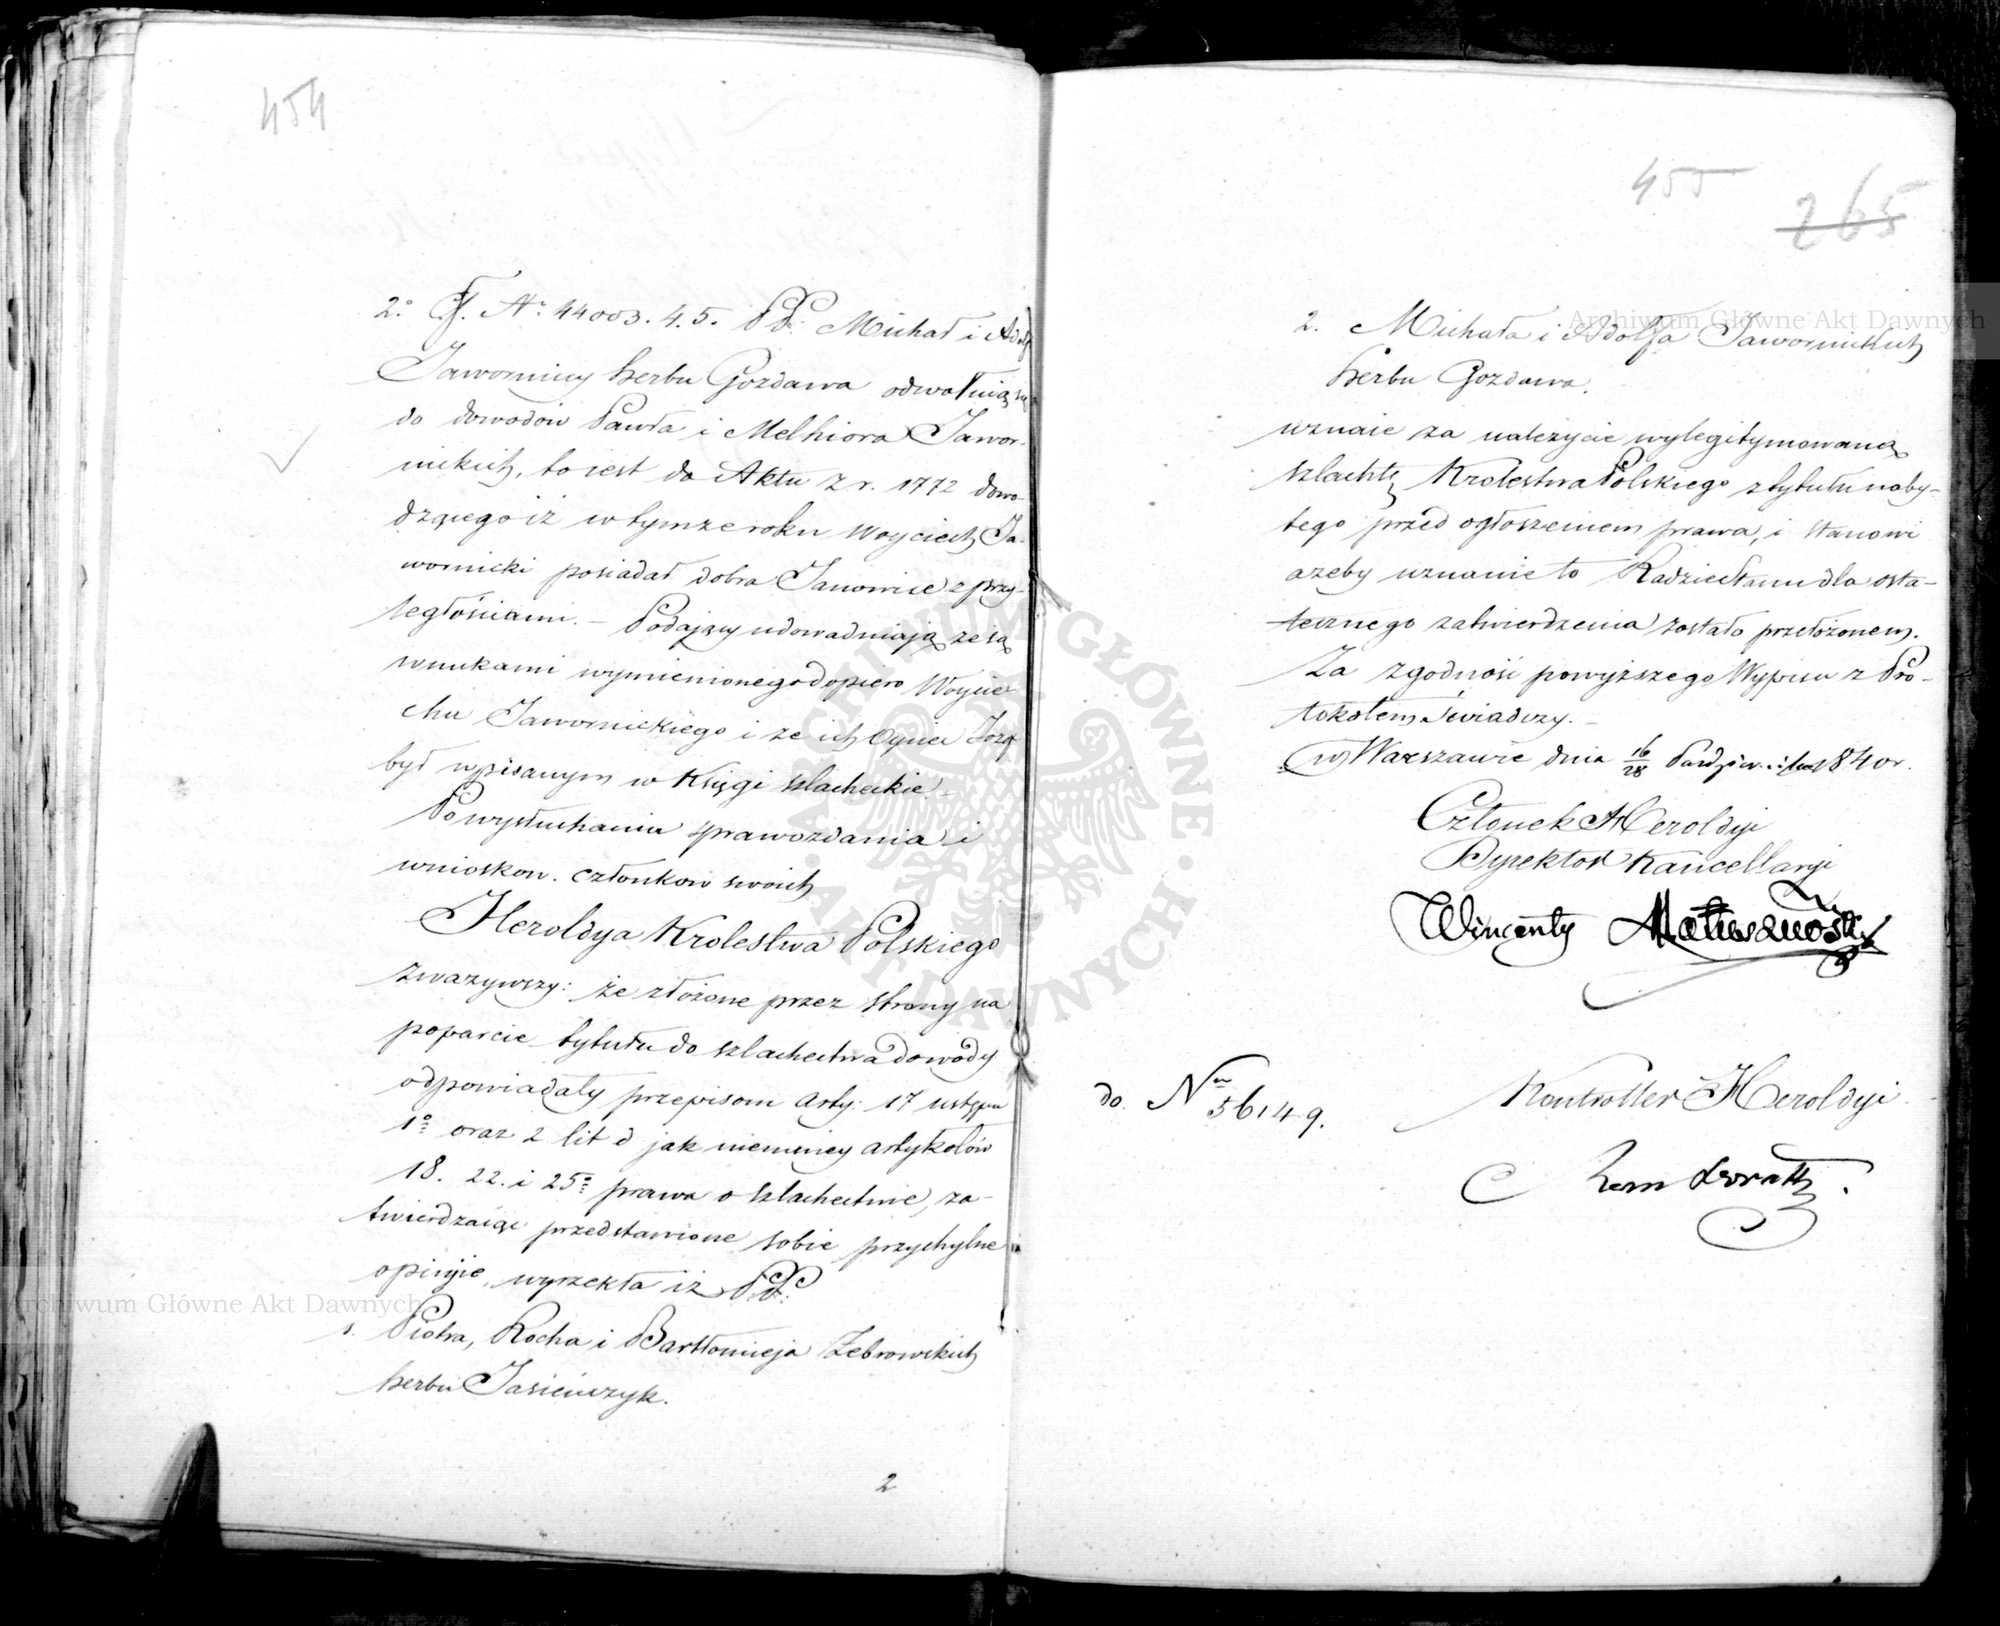 454
2º G. Nº 44003.4.5. PP. Michał i Adolf
Jaworniccy herbu Gozdawa odwołuią się
do dowodów Pawła i Melhiora Jawor-
nickich, to iest do Aktu z r. 1772 dowo-
dzącego iż w tymże roku Woyciech Ja-
wornicki posiadał dobra Janowice z przy-
ległościami. – Podający udowadniają że są
wnukami wymienionego dopiero Woycie-
cha Jawornickiego i że ich Oyciec Józef
był wpisanym w Księgi szlacheckie. –
Po wysłuchaniu sprawozdania i
wniosków członków swoich
Heroldya Krolestwa Polskiego
zważywszy: że złożone przez strony na
poparcie tytułu do szlachectwa dowody
odpowiadały przepisom arty: 17 ustępu
1º oraz 2 lit d jak niemniey artykołów
18. 22. i 25º prawa o szlachectwie, za-
twierdzaiąc przedstawione sobie przychylne
opinije, wyrzekła iż PP.
1. Piotra, Rocha i Bartłomieja Żebrowskich
herbu Jasieńczyk.
2
455
265
2. Michała i Adolfa Jawornickich
herbu Gozdawa.
uznaie za należycie wylegitymowaną
szlachtę Krolestwa Polskiego z tytułu naby-
tego przed ogłoszeniem prawa, i stanowi
ażeby uznanie to Radzie Stanu dla osta-
tecznego zatwierdzenia zostało przełożonem.
Za zgodność powyższego Wypisu z Pro-
tokołem świadczy. –
w Warszawie dnia 16/28 Paździer. 1840 r.
Członek Heroldyi
Dyrektor Kancellaryi
Wincenty Matuszewski
do Nru 56149.
Kontroller Heroldyi
Archiwum Główne Akt Dawnych
Archiwum Główne Akt Dawnych
ARCHIWUM GŁÓWNE · AKT DAWNYCH ·